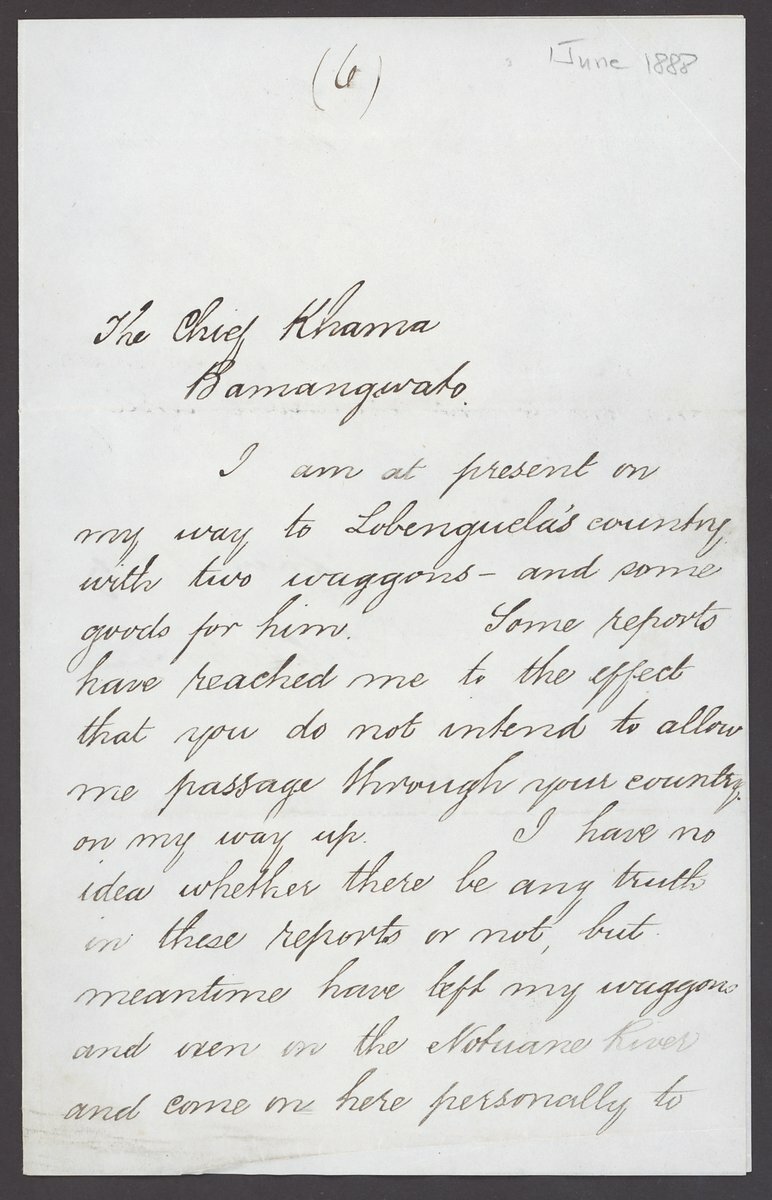 (6)
June 1888
The Chief Khama
Bamangwato.
I am at present on
my way to Lobenguela's country
with two waggons - and some
goods for him. Some reports
have reached me to the effect
that you do not intend to allow
me passage through your country
on my way up. I have no
idea whether there be any truth
in these reports or not, but
meantime have left my waggons
and oxen on the Notuane River
and come on here personally to